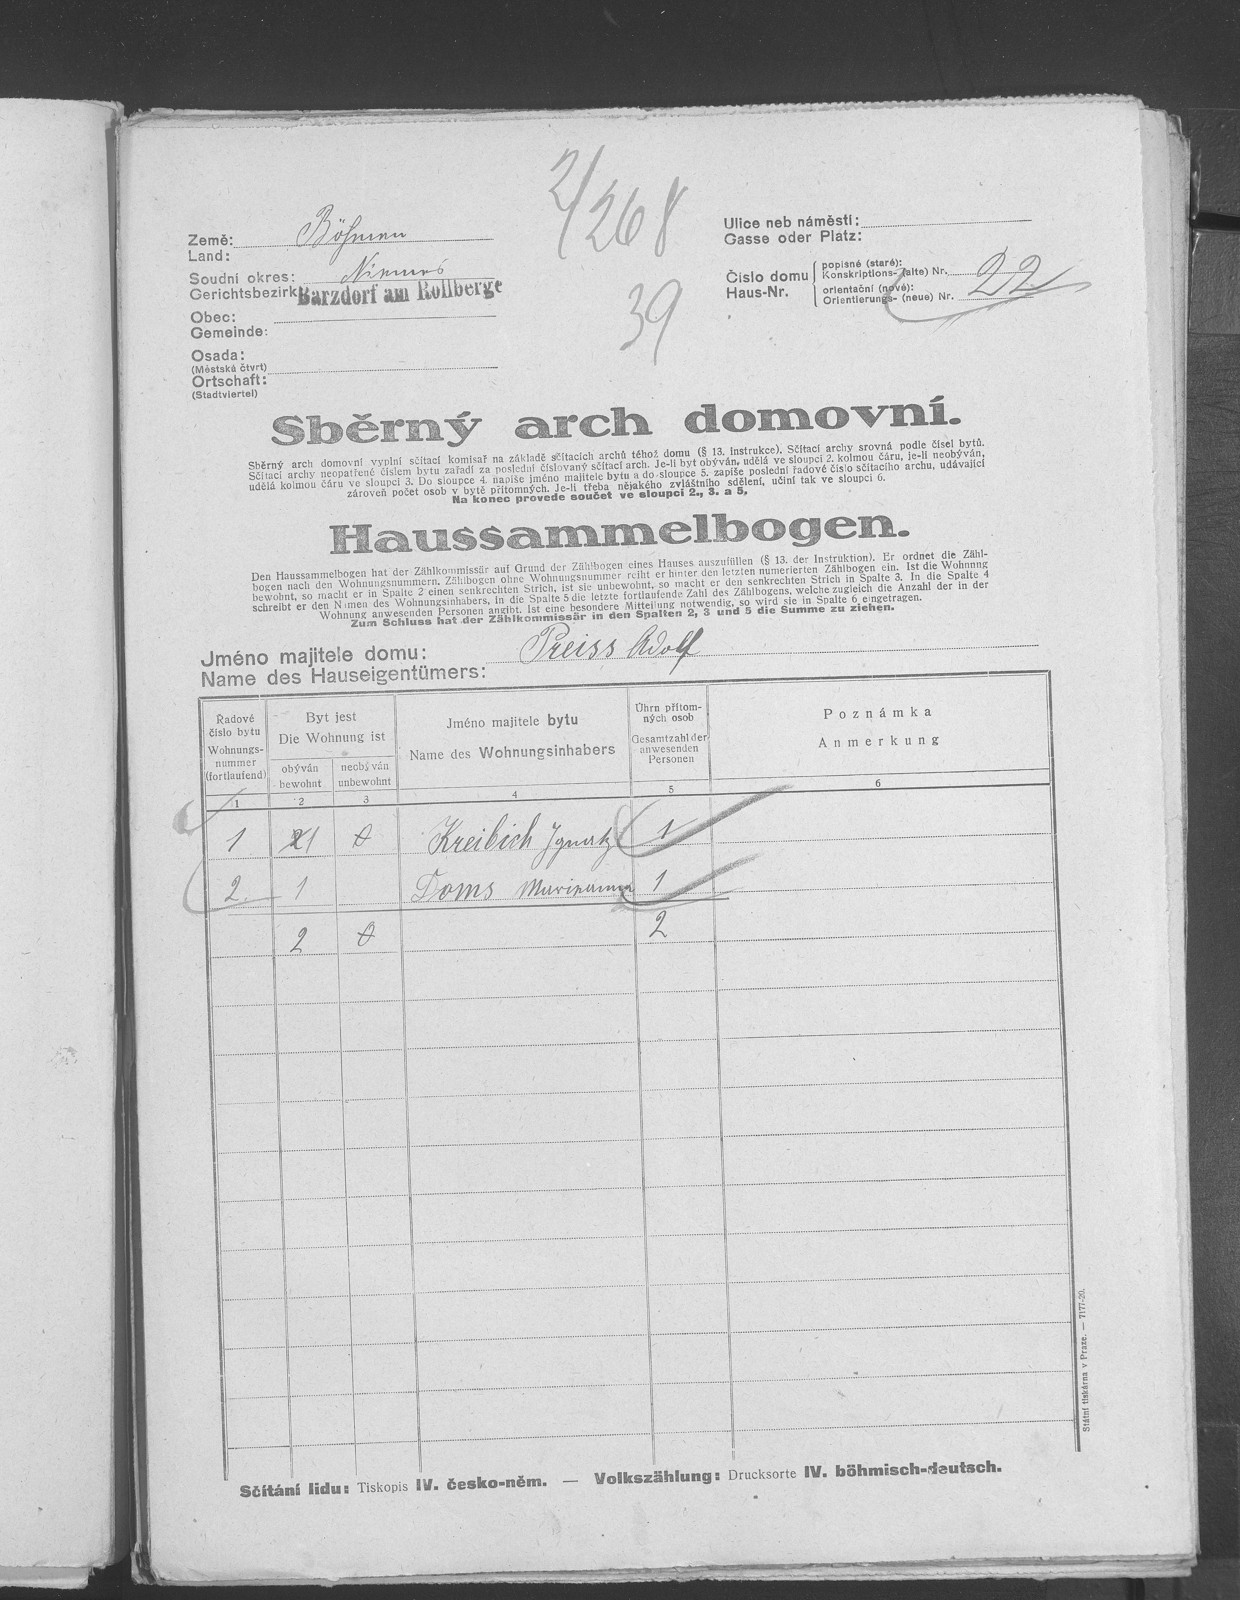 2/268
39
Země: Böhmen
Land:
Soudní okres: Niemes
Gerichtsbezirk
Barzdorf am Rollberge
Obec:
Gemeinde:
Osada:
(Městská čtvrt)
Ortschaft:
(Stadtviertel)
Ulice neb náměstí:
Gasse oder Platz:
Číslo domu
Haus-Nr.
popisné (staré):
Konskriptions- (alte) Nr.
orientační (nové):
Orientierungs- (neue) Nr.
22
Sběrný arch domovní.
Sběrný arch domovní vyplní sčítací komisař na základě sčítacích archů téhož domu (§ 13. Instrukce). Sčítací archy srovná podle čísel bytů.
Sčítací archy neopatřené číslem bytu zařadí za poslední číslovaný sčítací arch. Je-li byt obýván, udělá ve sloupci 2. kolmou čáru, je-li neobýván,
udělá kolmou čáru ve sloupci 3. Do sloupce 4. napíše jméno majitele bytu a do sloupce 5. zapíše poslední řadové číslo sčítacího archu, udávající
zároveň počet osob v bytě přítomných. Je-li třeba nějakého zvláštního sdělení, učiní tak ve sloupci 6.
Na konec provede součet ve sloupci 2., 3. a 5.
Haussammelbogen.
Den Haussammelbogen hat der Zählkommissär auf Grund der Zählbogen eines Hauses auszufüllen (§ 13. der Instruktion). Er ordnet die Zähl-
bogen nach den Wohnungsnummern. Zählbogen ohne Wohnungsnummer reiht er hinter den letzten numerierten Zählbogen ein. Ist die Wohnung
bewohnt, so macht er in Spalte 2 einen senkrechten Strich, ist sie unbewohnt, so macht er den senkrechten Strich in Spalte 3. In die Spalte 4
schreibt er den Namen des Wohnungsinhabers, in die Spalte 5 die letzte fortlaufende Zahl des Zählbogens, welche zugleich die Anzahl der in der
Wohnung anwesenden Personen angibt. Ist eine besondere Mitteilung notwendig, so wird sie in Spalte 6 eingetragen.
Zum Schluss hat der Zählkommissär in den Spalten 2, 3 und 5 die Summe zu ziehen.
Jméno majitele domu: Preiss Adolf
Name des Hauseigentümers:
Řadové
číslo bytu
Wohnungs-
nummer
(fortlaufend)
Byt jest
Die Wohnung ist
obýván
bewohnt
neobýván
unbewohnt
Jméno majitele bytu
Name des Wohnungsinhabers
Úhrn přítom-
ných osob
Gesamtzahl der
anwesenden
Personen
Poznámka
Anmerkung
1 2 3 4 5 6
1 1 0 Kreibich Ignatz 1
2. 1 Doms Marianna 1
2 0 2
Sčítání lidu: Tiskopis IV. česko-něm. — Volkszählung: Drucksorte IV. böhmisch-deutsch.
Státní tiskárna v Praze. — 7177-20.